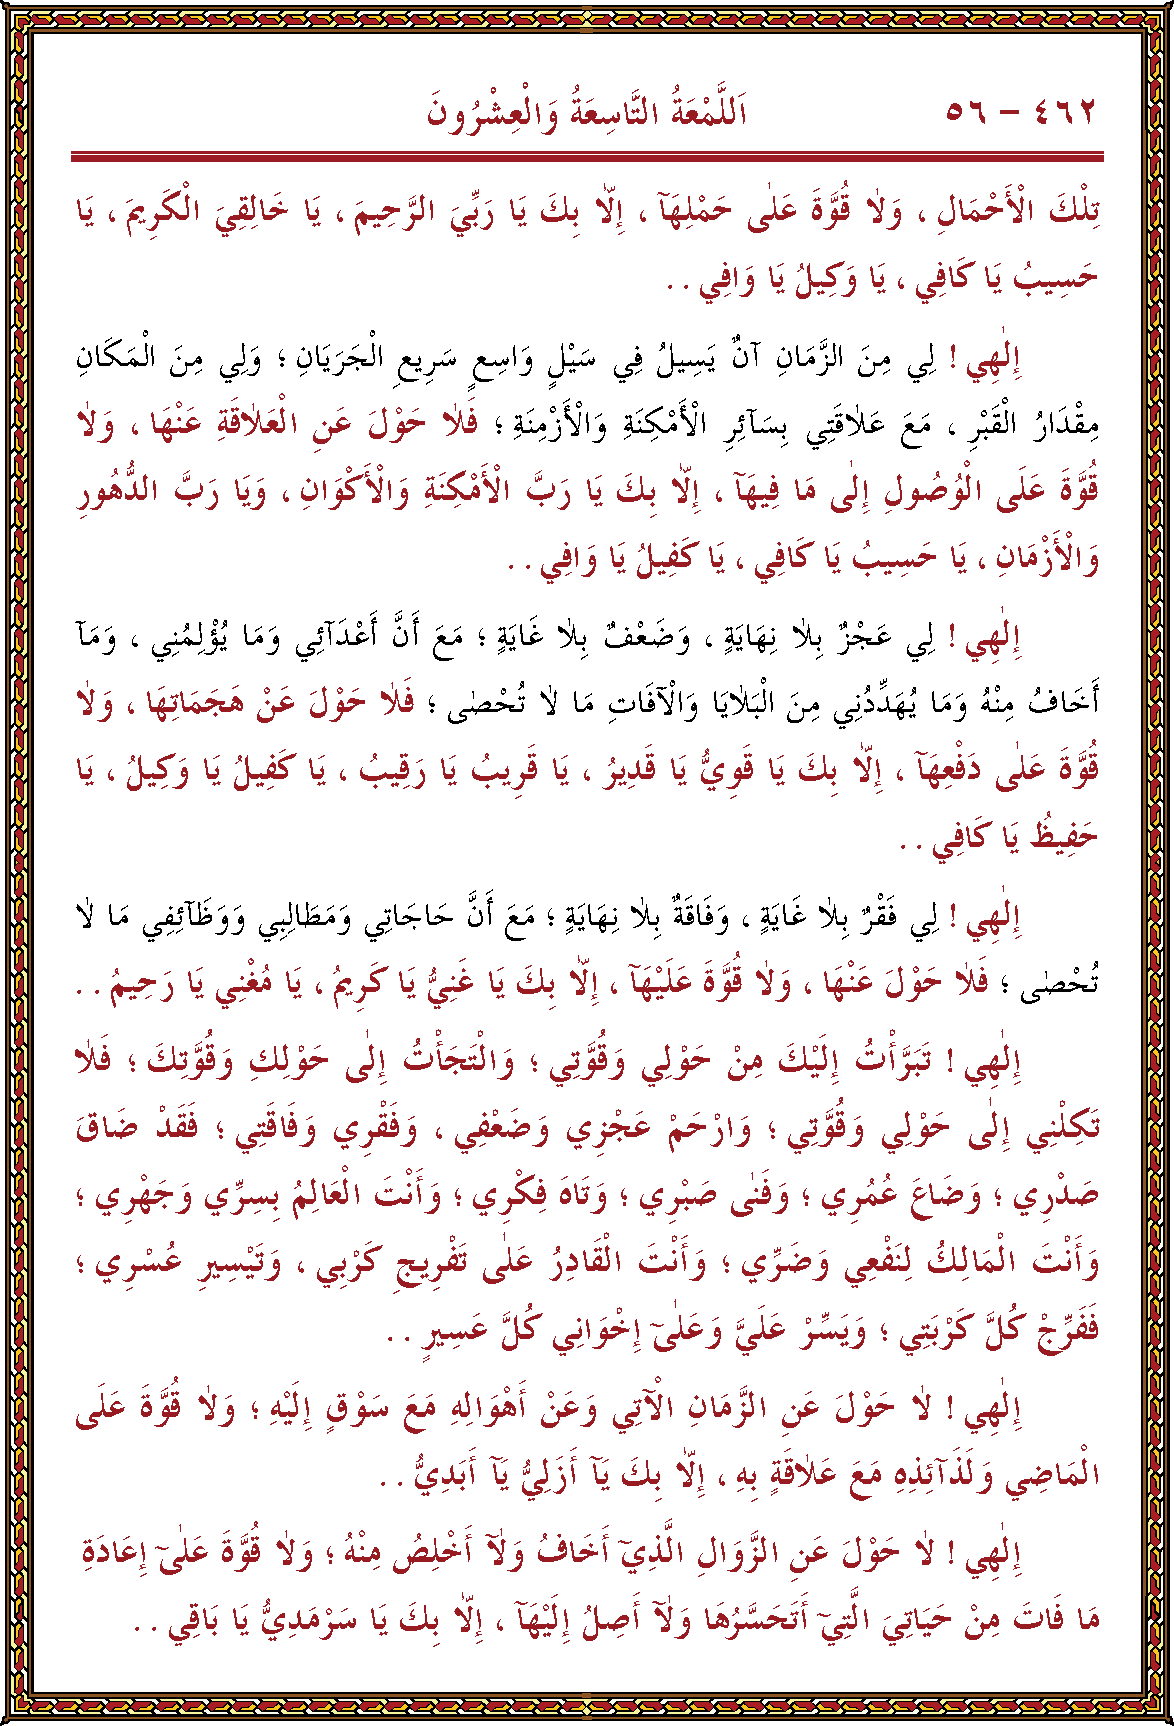 ٤٦٢ – ٥٦ اَللَّمْعَةُ التَّاسِعَةُ وَالْعِشْرُونَ
تِلْكَ الْأَحْمَالِ ، وَلَا قُوَّةَ عَلٰى حَمْلِهَآ ، إِلَّا بِكَ يَا رَبِّيَ الرَّحِيمَ ، يَا خَالِقِيَ الْكَرِيمَ ، يَا
حَسِيبُ يَا كَافِي ، يَا وَكِيلُ يَا وَافِي . .
إِلٰهِي ! لِي مِنَ الزَّمَانِ آنٌ يَسِيلُ فِي سَيْلٍ وَاسِعٍ سَرِيعِ الْجَرَيَانِ ؛ وَلِي مِنَ الْمَكَانِ
مِقْدَارُ الْقَبْرِ ، مَعَ عَلَاقَتِي بِسَآئِرِ الْأَمْكِنَةِ وَالْأَزْمِنَةِ ؛ فَلَا حَوْلَ عَنِ الْعَلَاقَةِ عَنْهَا ، وَلَا
قُوَّةَ عَلَى الْوُصُولِ إِلٰى مَا فِيهَآ ، إِلَّا بِكَ يَا رَبَّ الْأَمْكِنَةِ وَالْأَكْوَانِ ، وَيَا رَبَّ الدُّهُورِ
وَالْأَزْمَانِ ، يَا حَسِيبُ يَا كَافِي ، يَا كَفِيلُ يَا وَافِي . .
إِلٰهِي ! لِي عَجْزٌ بِلَا نِهَايَةٍ ، وَضَعْفٌ بِلَا غَايَةٍ ؛ مَعَ أَنَّ أَعْدَآئِي وَمَا يُؤْلِمُنِي ، وَمَآ
أَخَافُ مِنْهُ وَمَا يُهَدِّدُنِي مِنَ الْبَلَايَا وَالْآفَاتِ مَا لَا تُحْصٰى ؛ فَلَا حَوْلَ عَنْ هَجَمَاتِهَا ، وَلَا
قُوَّةَ عَلٰى دَفْعِهَآ ، إِلَّا بِكَ يَا قَوِيُّ يَا قَدِيرُ ، يَا قَرِيبُ يَا رَقِيبُ ، يَا كَفِيلُ يَا وَكِيلُ ، يَا
حَفِيظُ يَا كَافِي . .
إِلٰهِي ! لِي فَقْرٌ بِلَا غَايَةٍ ، وَفَاقَةٌ بِلَا نِهَايَةٍ ؛ مَعَ أَنَّ حَاجَاتِي وَمَطَالِبِي وَوَظَآئِفِي مَا لَا
تُحْصٰى ؛ فَلَا حَوْلَ عَنْهَا ، وَلَا قُوَّةَ عَلَيْهَآ ، إِلَّا بِكَ يَا غَنِيُّ يَا كَرِيمُ ، يَا مُغْنِي يَا رَحِيمُ . .
إِلٰهِي ! تَبَرَّأْتُ إِلَيْكَ مِنْ حَوْلِي وَقُوَّتِي ؛ وَالْتَجَأْتُ إِلٰى حَوْلِكِ وَقُوَّتِكَ ؛ فَلَا
تَكِلْنِي إِلٰى حَوْلِي وَقُوَّتِي ؛ وَارْحَمْ عَجْزِي وَضَعْفِي ، وَفَقْرِي وَفَاقَتِي ؛ فَقَدْ ضَاقَ
صَدْرِي ؛ وَضَاعَ عُمُرِي ؛ وَفَنٰى صَبْرِي ؛ وَتَاهَ فِكْرِي ؛ وَأَنْتَ الْعَالِمُ بِسِرِّي وَجَهْرِي ؛
وَأَنْتَ الْمَالِكُ لِنَفْعِي وَضَرِّي ؛ وَأَنْتَ الْقَادِرُ عَلٰى تَفْرِيجِ كَرْبِي ، وَتَيْسِيرِ عُسْرِي ؛
فَفَرِّجْ كُلَّ كَرْبَتِي ؛ وَيَسِّرْ عَلَيَّ وَعَلٰىٓ إِخْوَانِي كُلَّ عَسِيرٍ . .
إِلٰهِي ! لَا حَوْلَ عَنِ الزَّمَانِ الْآتِي وَعَنْ أَهْوَالِهِ مَعَ سَوْقٍ إِلَيْهِ ؛ وَلَا قُوَّةَ عَلَى
الْمَاضِي وَلَذَآئِذِهِ مَعَ عَلَاقَةٍ بِهِ ، إِلَّا بِكَ يَآ أَزَلِيُّ يَآ أَبَدِيُّ . .
إِلٰهِي ! لَا حَوْلَ عَنِ الزَّوَالِ الَّذِيٓ أَخَافُ وَلَآ أَخْلِصُ مِنْهُ ؛ وَلَا قُوَّةَ عَلٰىٓ إِعَادَةِ
مَا فَاتَ مِنْ حَيَاتِيَ الَّتِيٓ أَتَحَسَّرُهَا وَلَآ أَصِلُ إِلَيْهَآ ، إِلَّا بِكَ يَا سَرْمَدِيُّ يَا بَاقِي . .